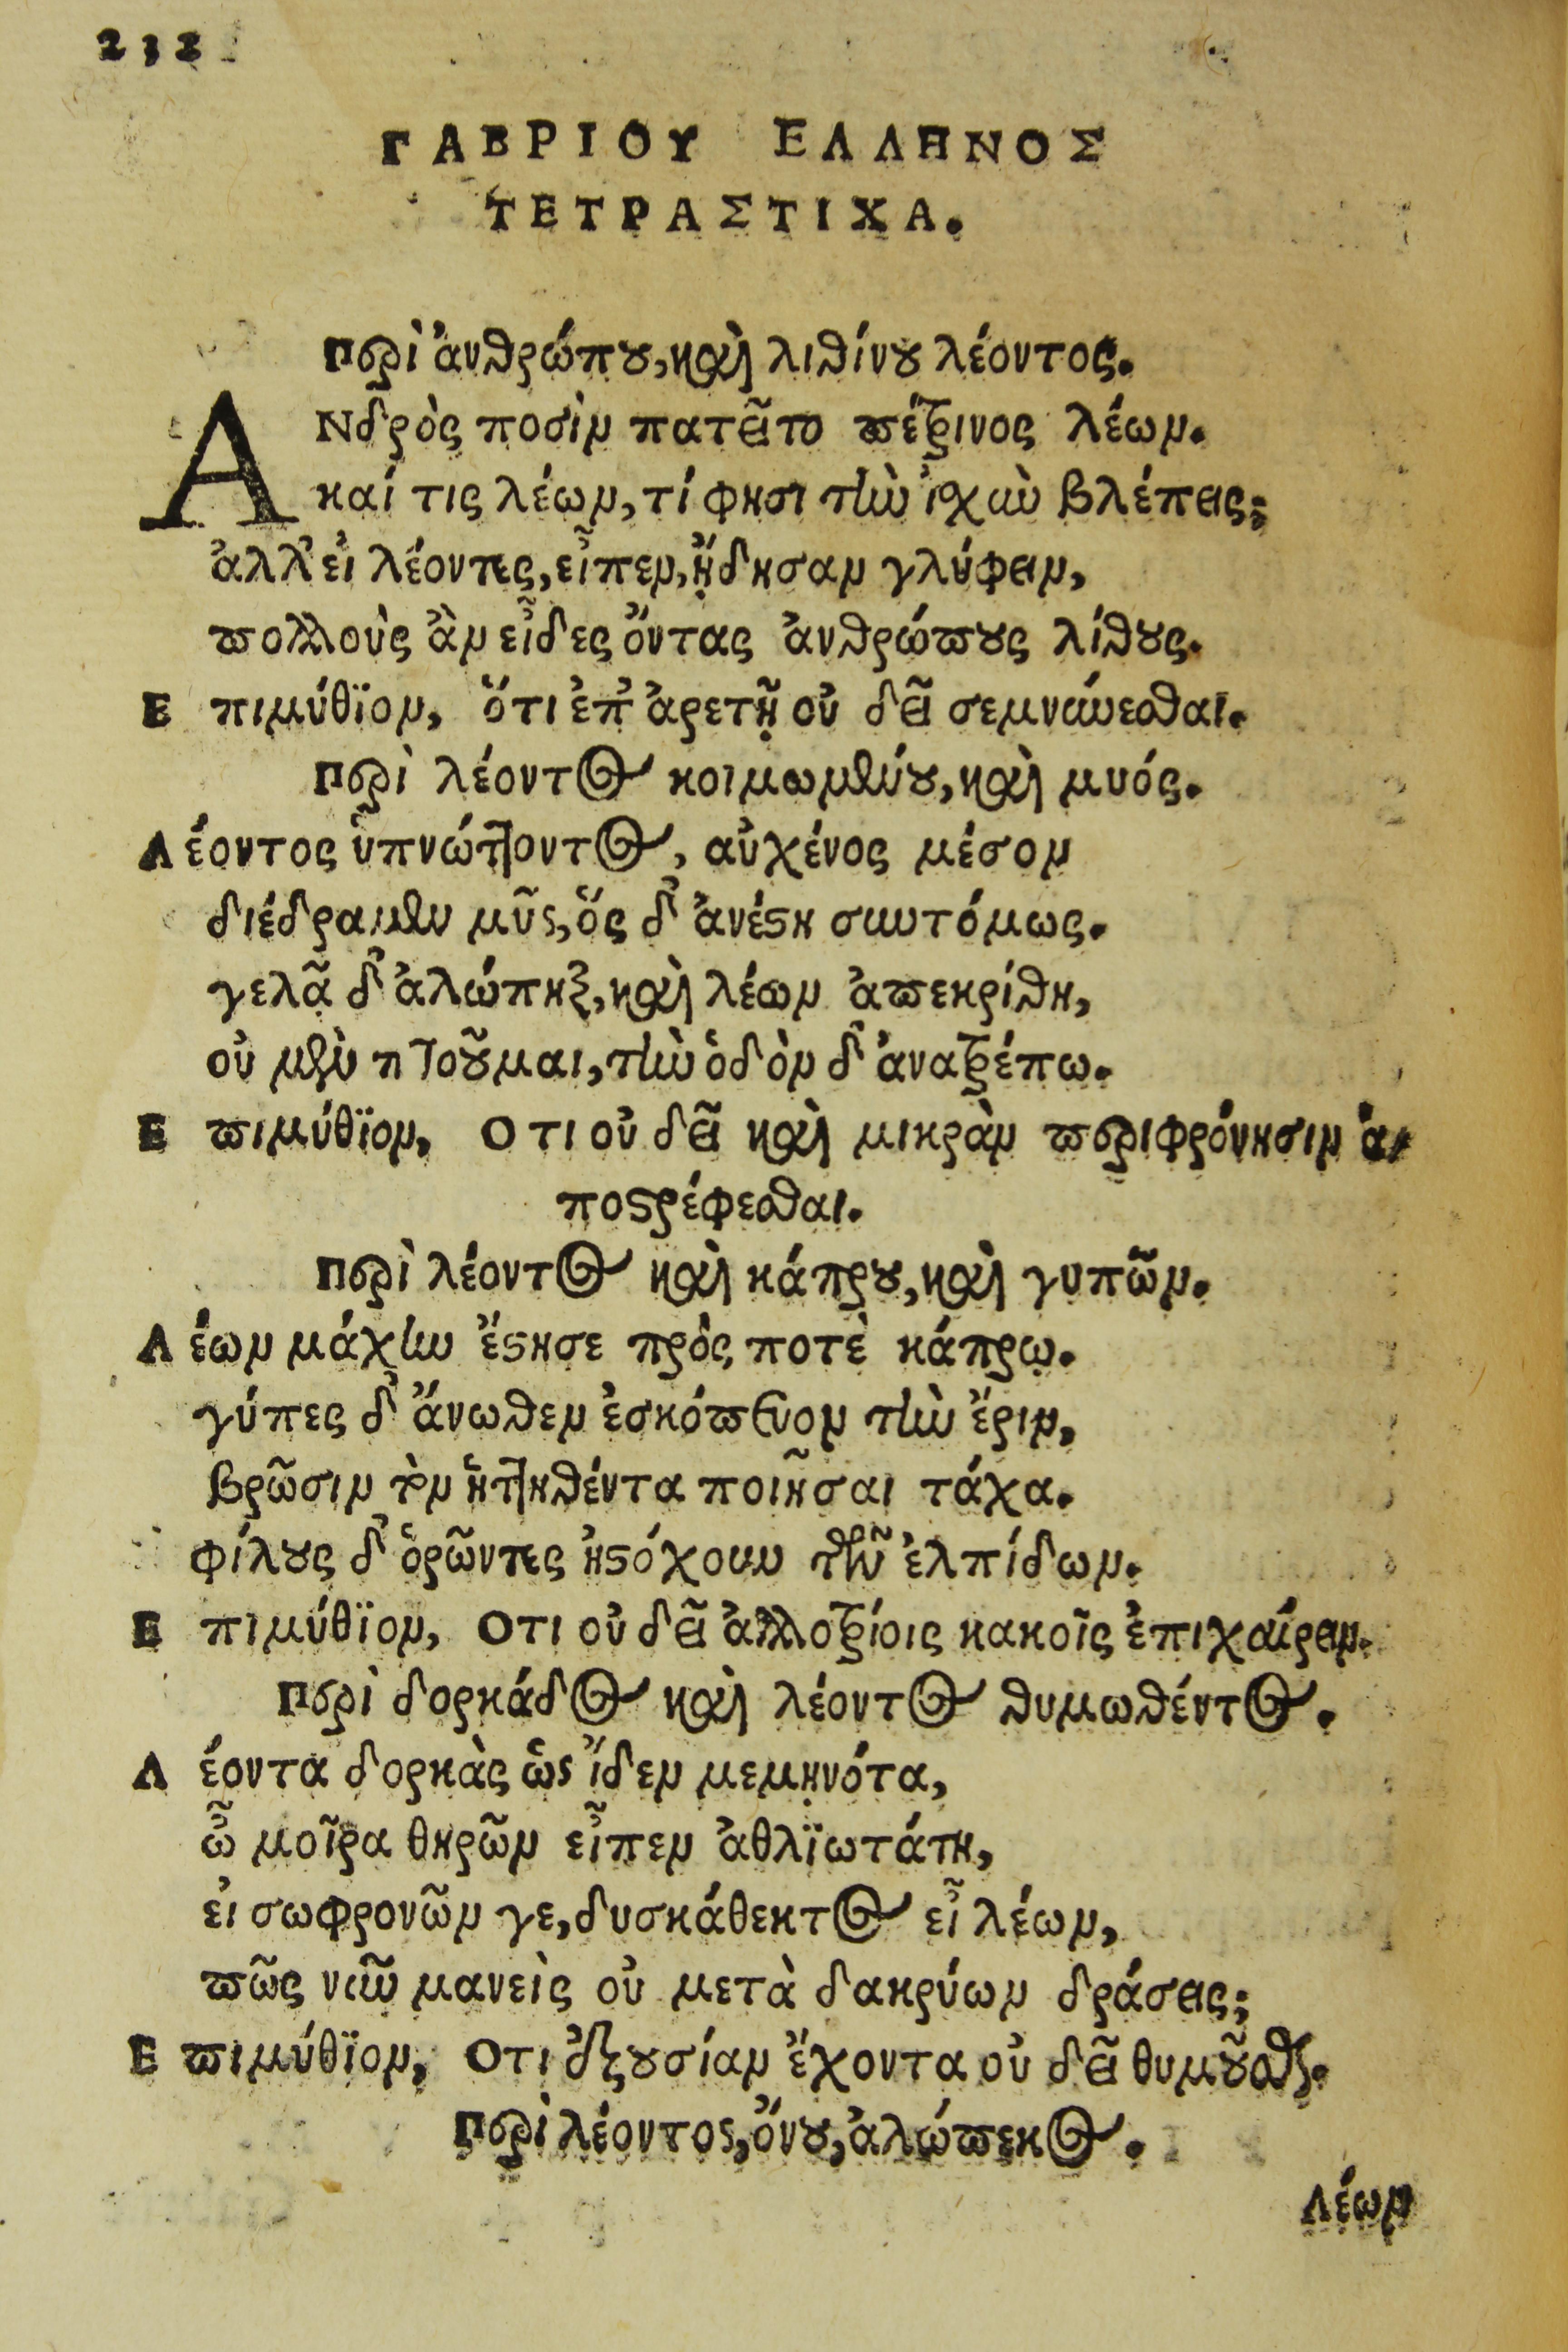 232
ΓΑΒΡΙΟΥ ΕΛΛΗΝΟΣ
ΤΕΤΡΑΣΤΙΧΑ.
Περὶ ἀνθρώπου, καὶ λιθίνου λέοντος.
ΑΝδρὸς ποσὶν πατεῖτο πέτρινος λέων.
καί τις λέων, τί φησι τὴν ἰχὺν βλέπεις;
ἀλλ' εἰ λέοντες, εἶπεν, ᾔδησαν γλύφειν,
πολλοὺς ἂν εἶδες ὄντας ἀνθρώπους λίθους.
Επιμύθϊον, ὅτι ἐπ' ἀρετῇ οὐ δεῖ σεμνύνεσθαι.
Περὶ λέοντος κοιμωμένου, καὶ μυός.
Λέοντος ὑπνώττοντος, αὐχένος μέσον
διέδραμεν μῦς, ὅς δ' ἀνέστη συντόμως.
γελᾷ δ' ἀλώπηξ, καὶ λέων ἀπεκρίθη,
οὐ μῦν πτοοῦμαι, τὴν ὁδὸν δ' ἀνατρέπω.
Επιμύθϊον, Οτι οὐ δεῖ καὶ μικρὰν περιφρόνησιν ἀ-
ποστρέφεσθαι.
Περὶ λέοντος καὶ κάπρου, καὶ γυπῶν.
Λέων μάχην ἔστησε πρὸς ποτὲ κάπρῳ.
γύπες δ' ἄνωθεν ἐσκόπευον τὴν ἔριν,
βρῶσιν τὸν ἡττηθέντα ποιῆσαι τάχα.
φίλους δ' ὁρῶντες ἠστόχουν τῶν ἐλπίδων.
Επιμύθϊον, Οτι οὐ δεῖ ἀλλοτρίοις κακοῖς ἐπιχαίρειν.
Περὶ δορκάδος καὶ λέοντος θυμωθέντος.
Λέοντα δορκὰς ὡς ἴδεν μεμηνότα,
ὦ μοῖρα θηρῶν εἶπεν ἀθλϊωτάτη,
εἰ σωφρονῶν γε, δυσκάθεκτος εἶ λέων,
πῶς νῦν μανεὶς οὐ μετὰ δακρύων δράσεις;
Επιμύθϊον, Οτι ἐξουσίαν ἔχοντα οὐ δεῖ θυμοῦσθαι.
Περὶ λέοντος, ὄνου, ἀλώπεκος.
Λέων